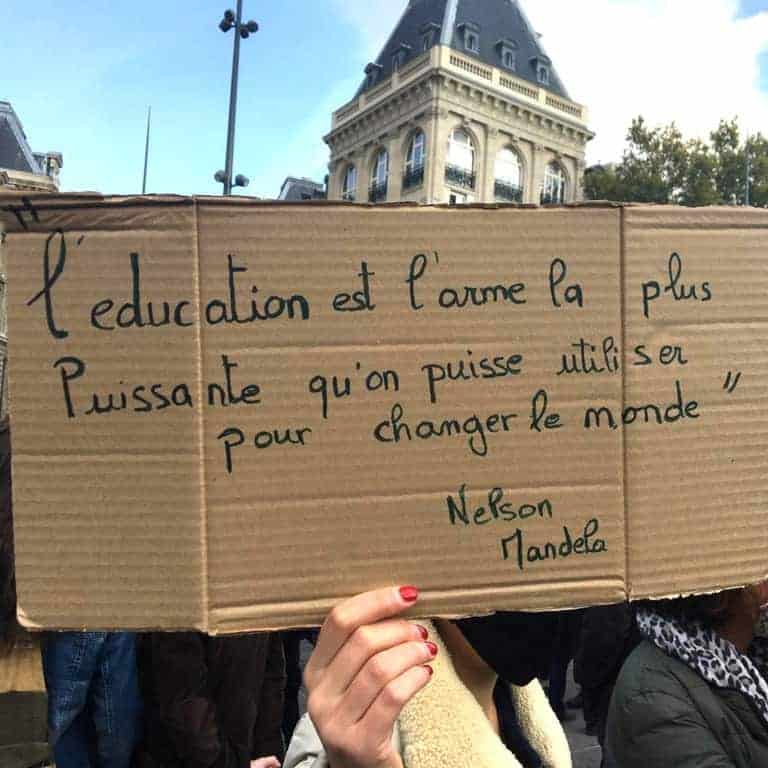 " l'education est l'arme la plus
Puissante qu'on puisse utiliser
pour changer le monde "
Nelson
Mandela